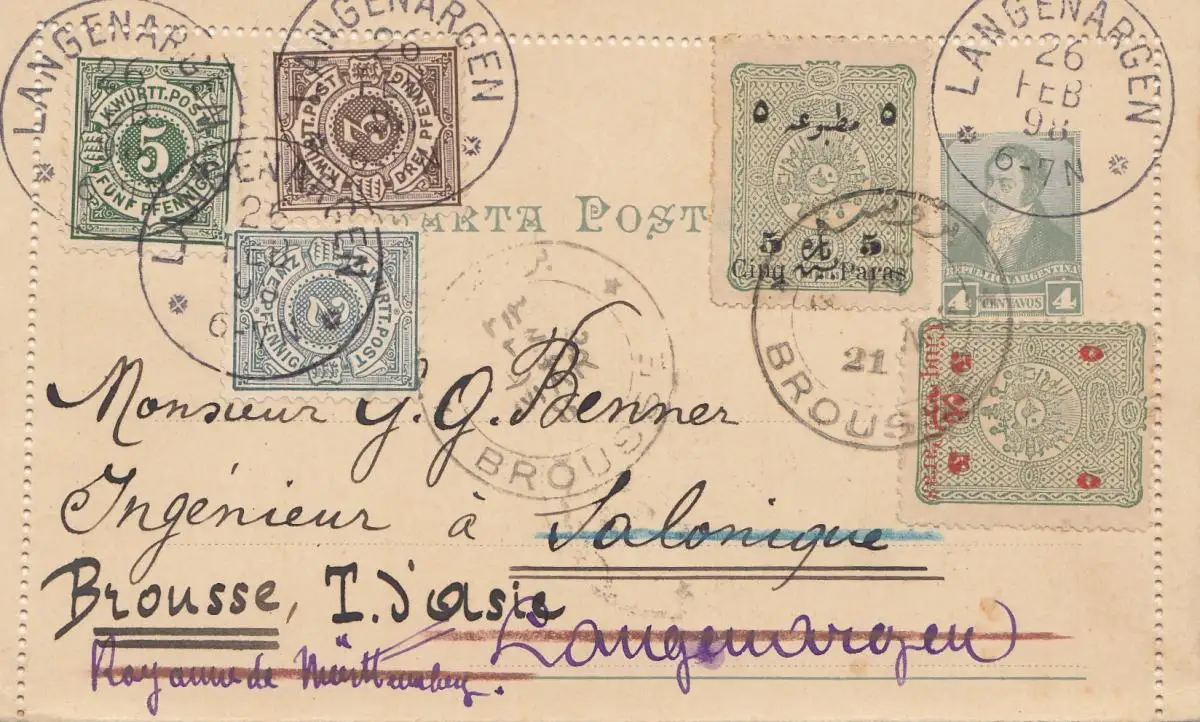 LANGENARGEN
26
FEB
LANGENARGEN
26
FEB
LANGENARGEN
26
FEB
98
6-7N
K.WÜRTT.POST
5
FÜNF PFENNIG
K.WÜRTT.POST
3
DREI PFENNIG
LANGENARGEN
26
FEB
9
6-7N
K.WÜRTT.POST
2
ZWEI PFENNIG
CARTA POST
٥ مطبوعه ٥
5 5
Cinq Paras
REPUBLICA ARGENTINA
4 CENTAVOS 4
BROUSSE
21
BROUSSE
٥
5
5
٥
Monsieur G. G. Benner
Ingénieur à Salonique
Brousse, T. d'asie
Langenargen
Royaume de Württemberg.